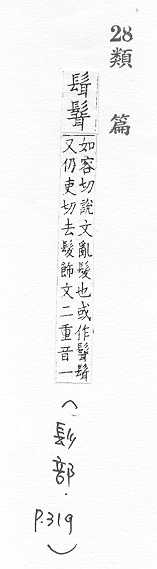 28
類篇
髶
如容切說文亂髮也或作
又仍吏切去髮飾文二重音一
(髟部.P.319)